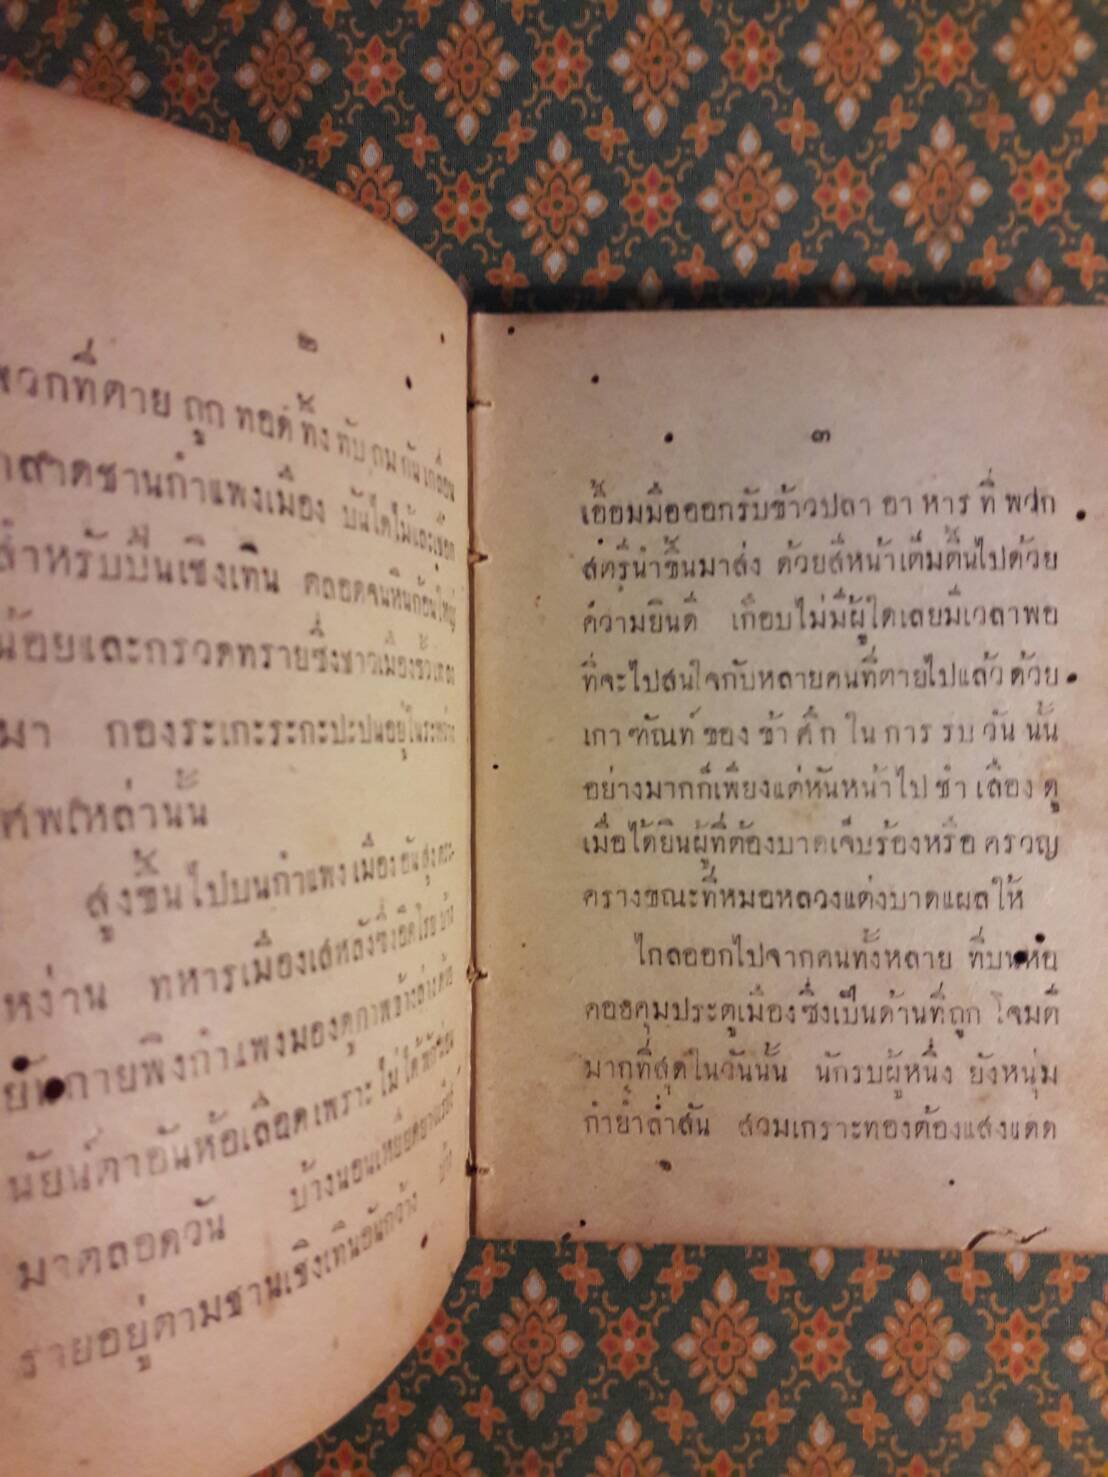 ๒
พวกที่ตาย ถูก ทอดทิ้ง ทับ ถม กัน เกลื่อน
กลาดชานกำแพงเมือง บันไดไม้และเชือก
สำหรับปีนเชิงเทิน ตลอดจนหินก้อนใหญ่
น้อยและกรวดทรายซึ่งชาวเมืองขว้างลง
มา กองระเกะระกะปะปนอยู่ในระหว่าง
ศพเหล่านั้น
สูงขึ้นไปบนกำแพง เมือง อันสูงตระ-
หง่าน ทหารเมืองเสหลังซึ่งอิดโรย บ้าง
ยันกายพิงกำแพงมองดูภาพข้างล่างด้วย
นัยน์ตาอันห้อเลือดเพราะ ไม่ ได้พักผ่อน
มาตลอดวัน บ้างนอนเหยียดยาวเรี่ย
รายอยู่ตามชานเชิงเทินอันกว้าง บ้าง
๓
เอื้อมมือออกรับข้าวปลา อา หาร ที่ พวก
สตรีนำขึ้นมาส่ง ด้วยสีหน้าเต็มตื้นไปด้วย
ความยินดี เกือบไม่มีผู้ใดเลยมีเวลาพอ
ที่จะไปสนใจกับหลายคนที่ตายไปแล้ว ด้วย
เกา ฑัณฑ์ ของ ข้า ศึก ใน การ รบ วัน นั้น
อย่างมากก็เพียงแต่หันหน้าไป ชำ เลือง ดู
เมื่อได้ยินผู้ที่ต้องบาดเจ็บร้องหรือ ครวญ
ครางขณะที่หมอหลวงแต่งบาดแผลให้
ไกลออกไปจากคนทั้งหลาย ที่บนหอ
คอยคุมประตูเมืองซึ่งเป็นด้านที่ถูก โจมตี
มากที่สุดในวันนั้น นักรบผู้หนึ่ง ยังหนุ่ม
กำยำล่ำสัน สวมเกราะทองต้องแสงแดด